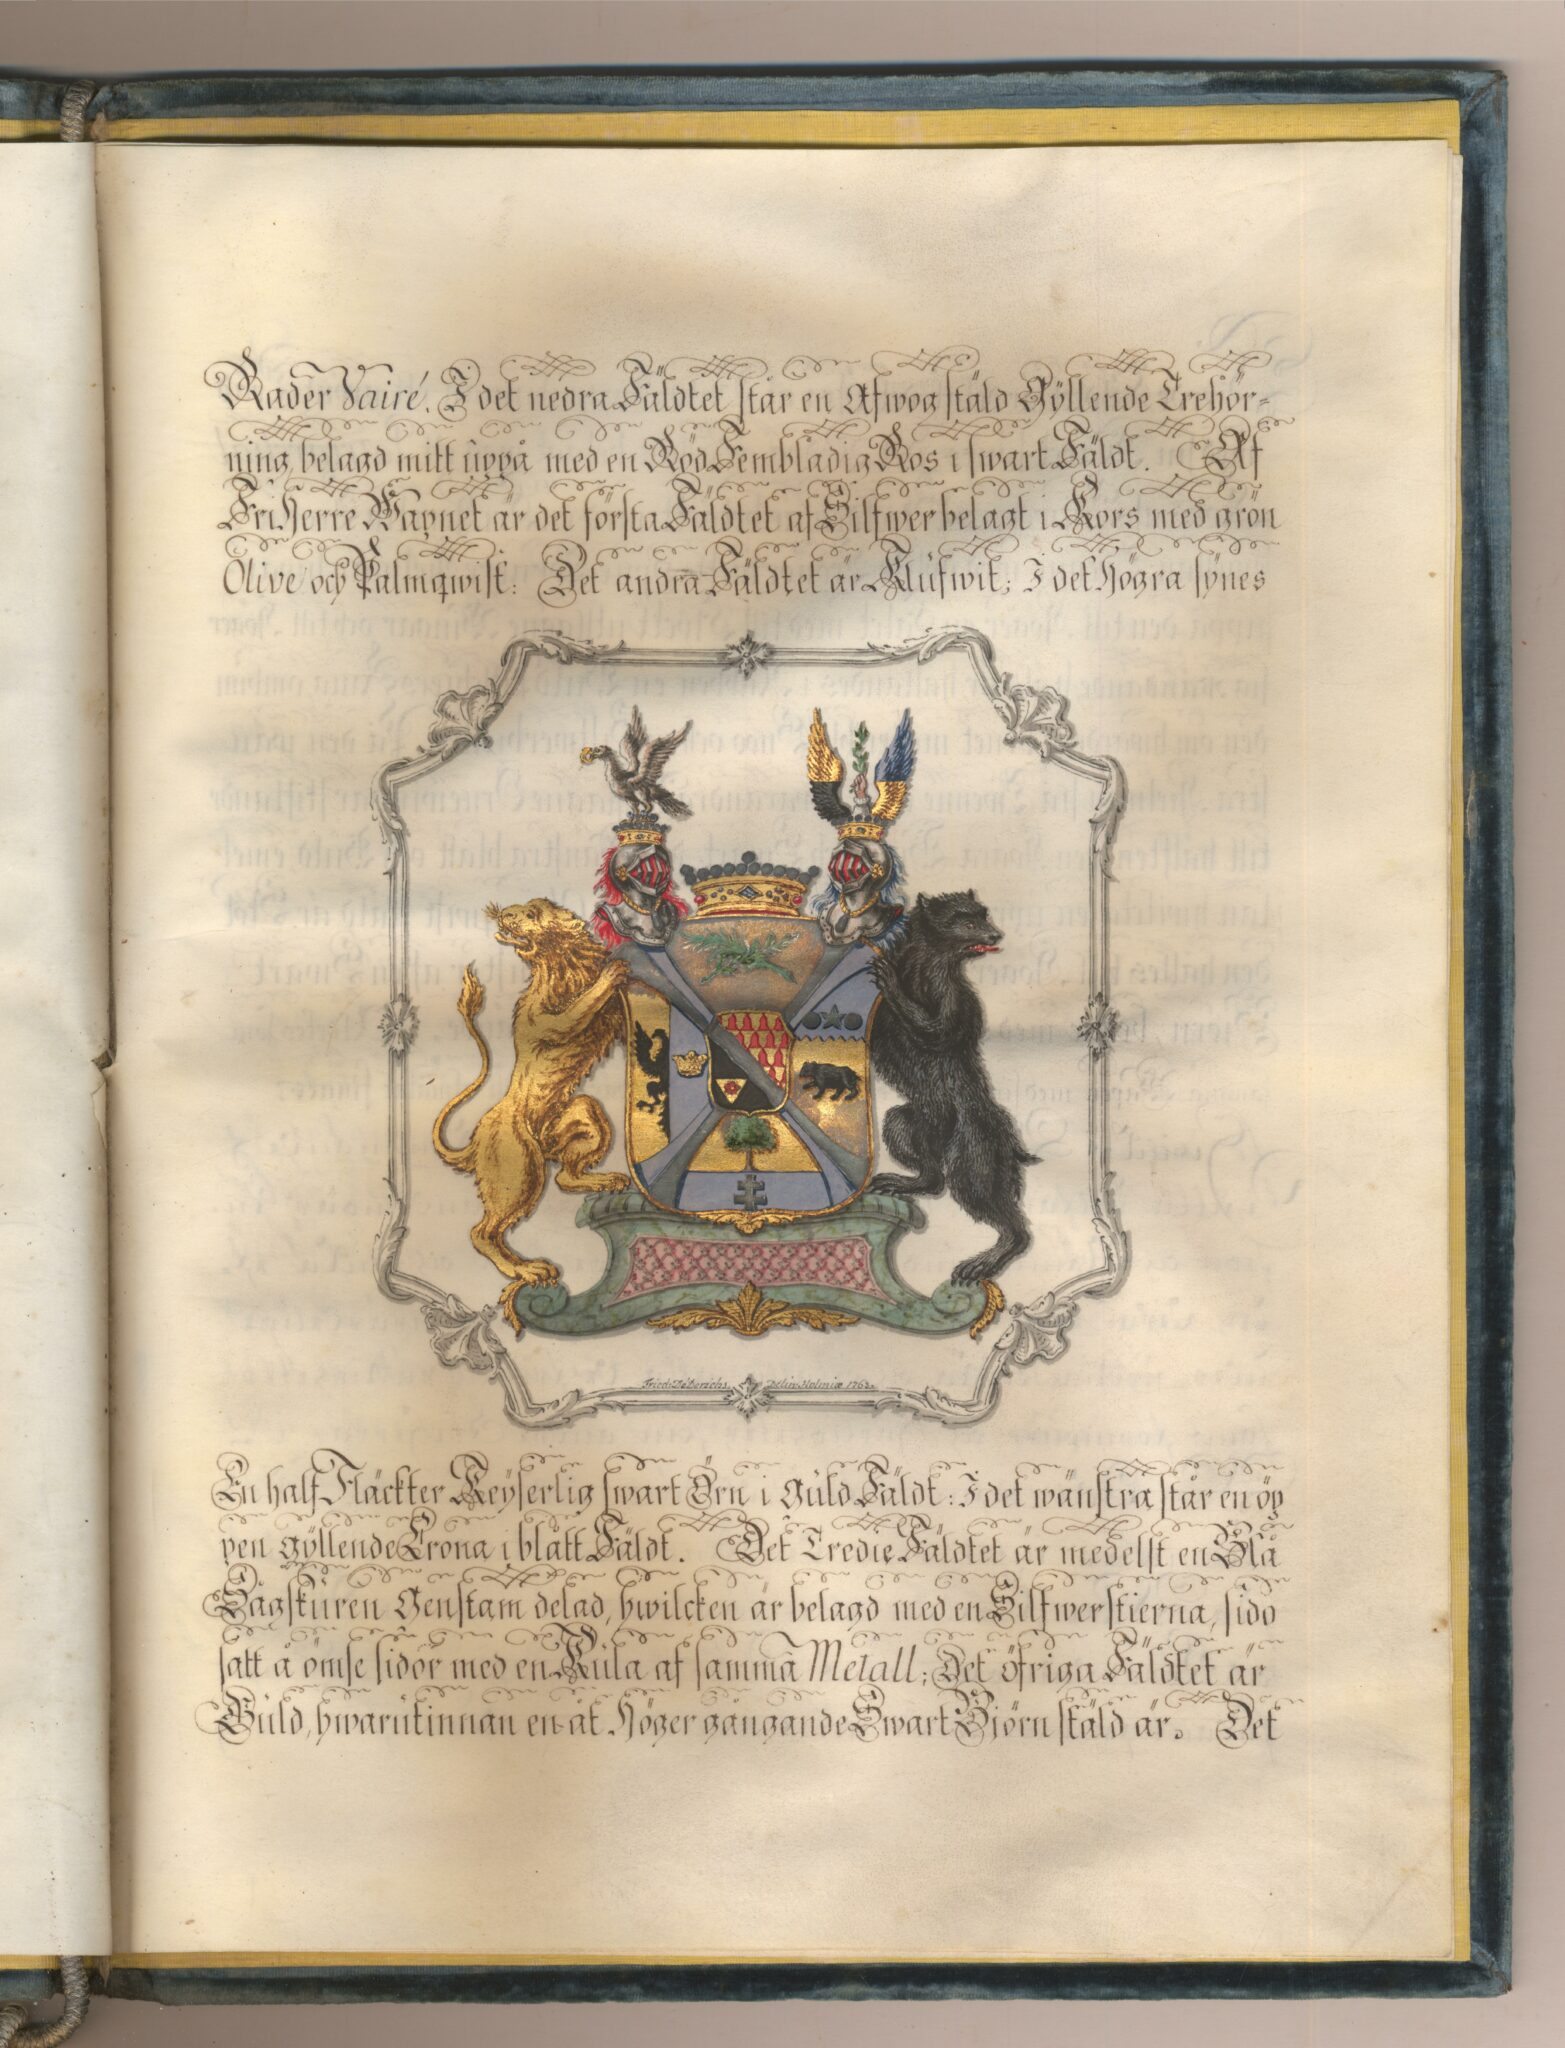 Rader Vairé. I det nedra Fäldtet står en Afwog stäld Gyllende Trehör=
ning, belagd mitt uppå med en Röd Fembladig Ros i swart Fäldt. Af
FriHerre Wapnet är det första Fäldtet af Silfwer belagt i Kors med grön
Olive och Palmqwist: Det andra Fäldtet är Klufwit; I det högra synes
Fried: Delin: Holmiæ
En half Fläckter Keyserlig swart Örn i Guld Fäldt: I det wänstra står en öp
pen gyllende Crona i blått Fäldt. Det Tredie Fäldtet är medelst en Blå
Sågskuren Genstam delad, hwilcken är belagd med en Silfwerstierna, sido
satt å ömse sidor med en Kula af samma Metall; Det öfriga Fäldtet är
Guld, hwarutinnan en åt höger gångande Swart Björn stäld är. Det